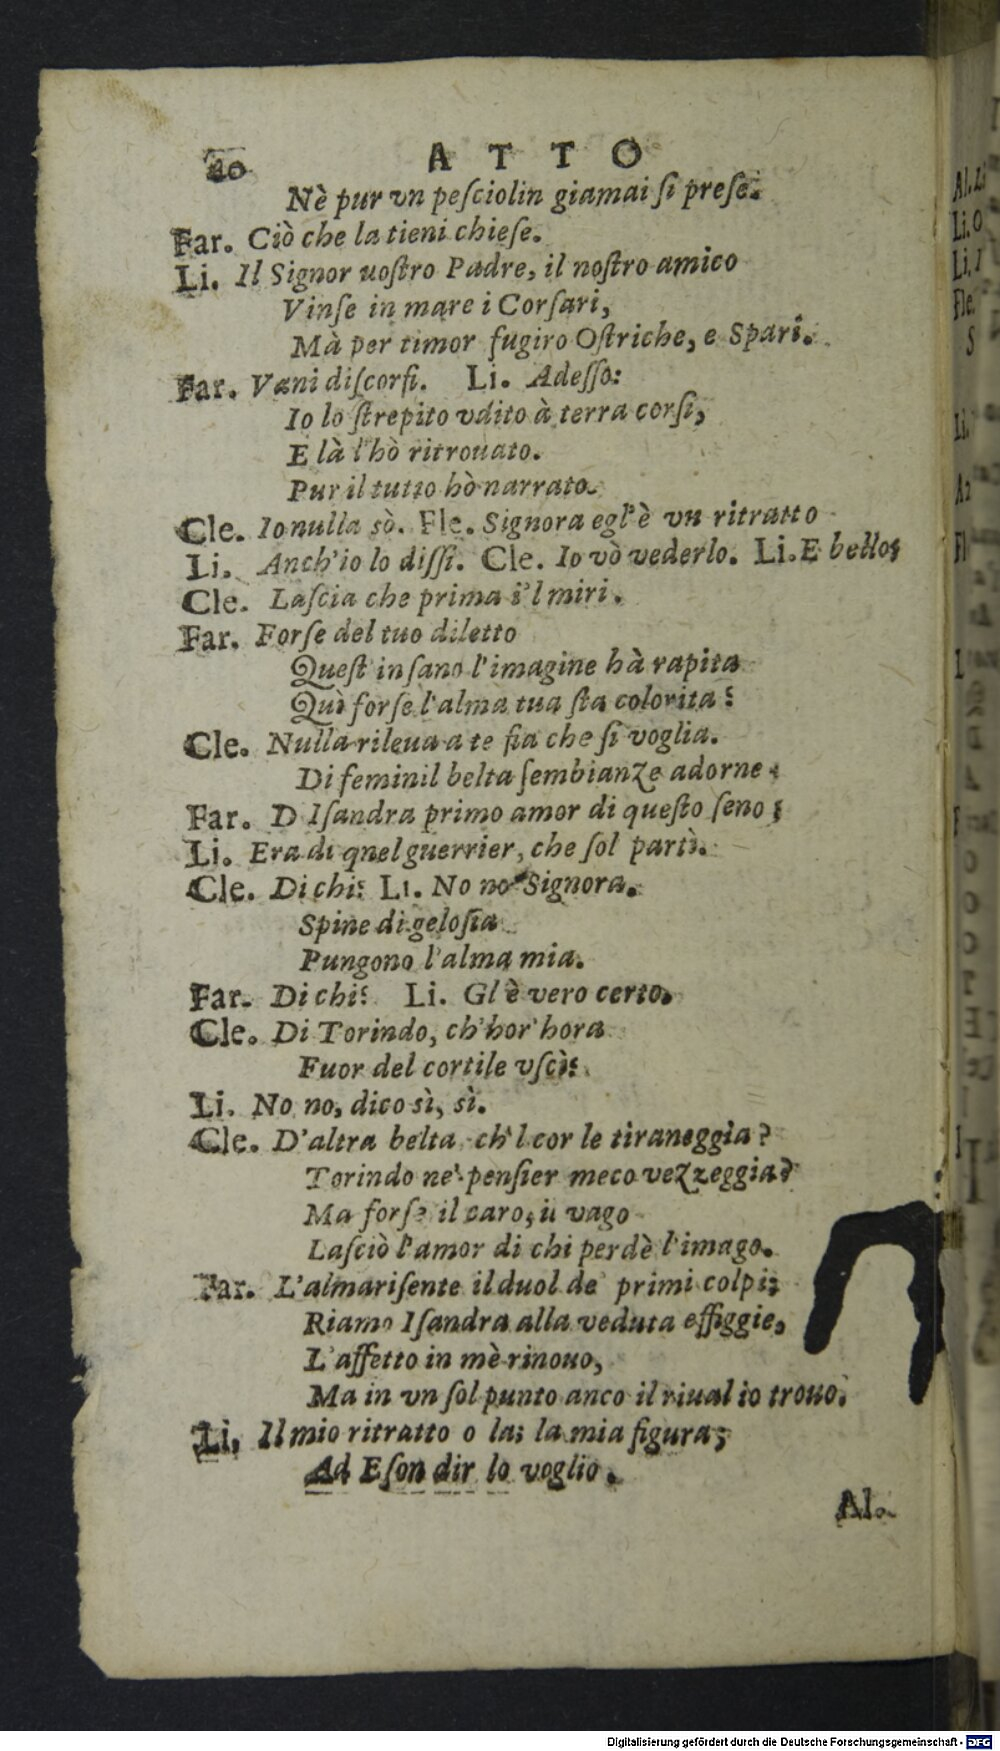 20 ATTO
Nè pur vn peſciolin giamai ſi preſe.
Far. Ciò che la tieni chieſe.
Li. Il Signor uoſtro Padre, il noſtro amico
Vinſe in mare i Corſari,
Mà per timor fugiro Oſtriche, e Spari.
Far. Vani diſcorſi. Li. Adeſſo:
Io lo ſtrepito vdito à terra corſi,
E là l'hò ritrouato.
Pur il tutto hò narrato.
Cle. Io nulla sò. Fle. Signora egl'è vn ritratto
Li. Anch'io lo diſſi. Cle. Io vò vederlo. Li. E bello;
Cle. Laſcia che prima i'l miri.
Far. Forſe del tuo diletto
Queſt' inſano l'imagine hà rapita
Quì forſe l'alma tua ſta colorita?
Cle. Nulla rileua a te ſia che ſi voglia.
Di feminil belta ſembianze adorne.
Far. D Iſandra primo amor di queſto ſeno;
Li. Era di quel guerrier, che ſol partì.
Cle. Di chi? Li. No no Signora.
Spine di geloſia
Pungono l'alma mia.
Far. Di chi? Li. Gl'è vero certo.
Cle. Di Torindo, ch'hor'hora
Fuor del cortile vſcì?
Li. No no, dico sì, sì.
Cle. D'altra belta ch'l cor le tiraneggia?
Torindo ne' penſier meco vezzeggia?
Ma forſe il caro, il vago
Laſciò l'amor di chi perdè l'imago.
Far. L'alma riſente il duol de' primi colpi;
Riamo Iſandra alla veduta effiggie,
L'affetto in mè rinouo,
Ma in vn ſol punto anco il riual io trouo.
Li. Il mio ritratto o la; la mia figura;
Ad Eſon dir lo voglio.
Al.
Al. Li
Li. O
Li. I
Fle.
S
Li.
Digitalisierung gefördert durch die Deutsche Forschungsgemeinschaft - DFG